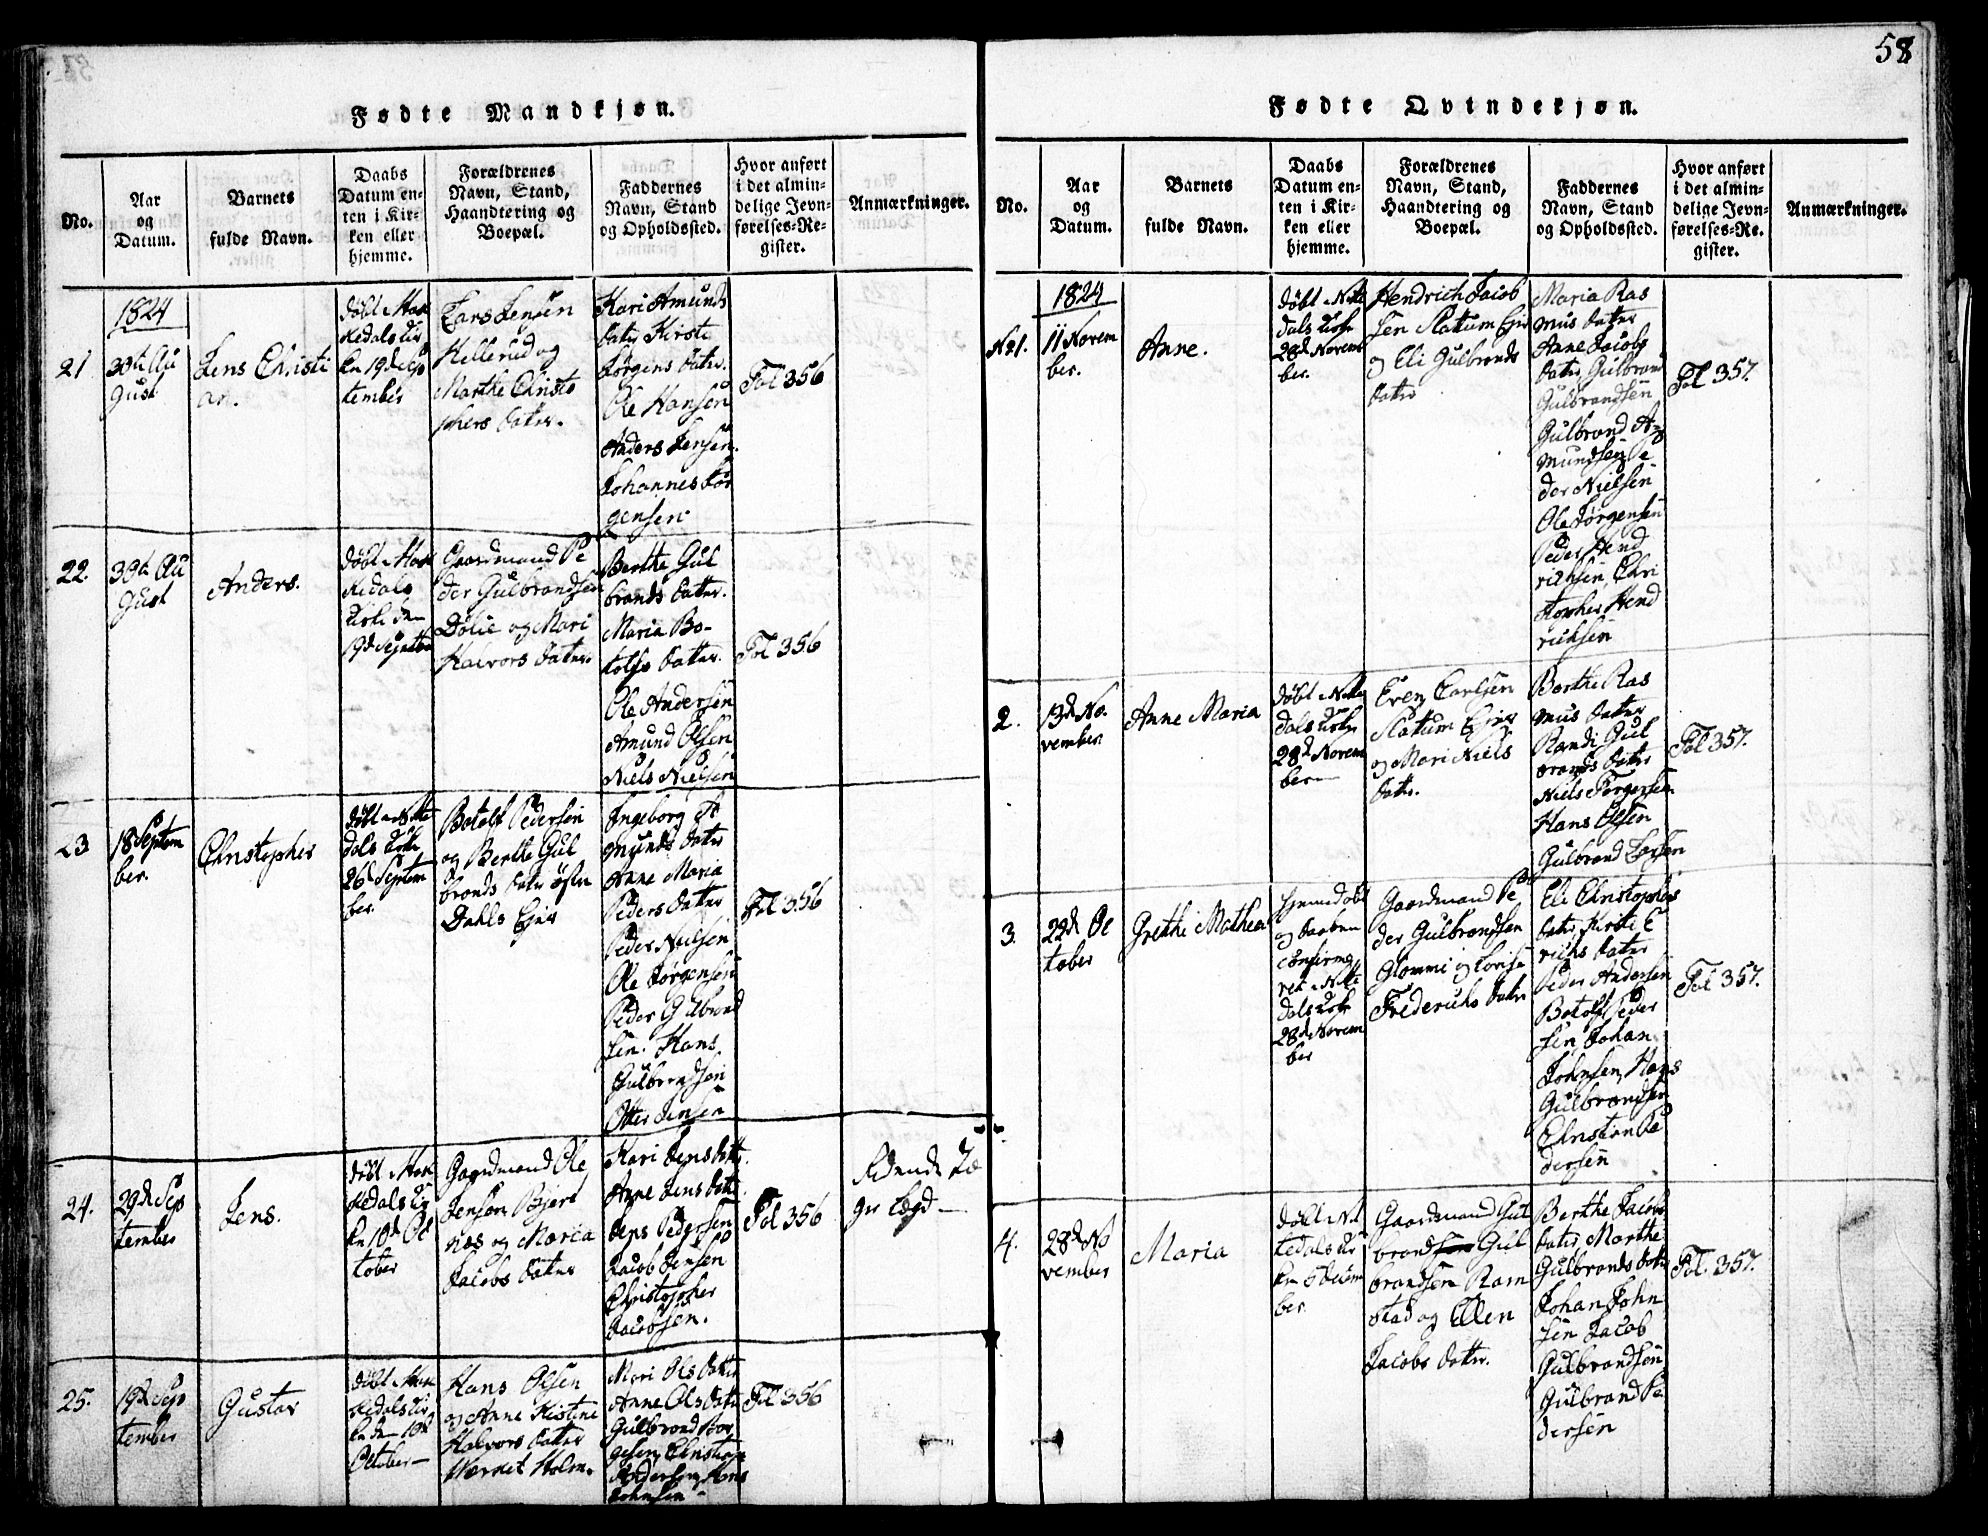 58
Fødte Mandkjøn.
No.
Aar
og
Datum.
Barnets
fulde Navn.
Daabs
Datum en-
ten i Kir-
ken eller
hjemme.
Forældrenes
Navn, Stand,
Haandtering og
Boepæl.
Faddernes
Navn, Stand
og Opholdssted.
Hvor anført
i det almin-
delige Jevn-
førelses-Re-
gister.
Anmærkninger.
1824
21
30th Au
gust
Jens Christi
an.
døbt i Hak
kedals Kir
ken 19d Sep
tember
Lars Jensen
Hellerud og
Marthe Christo
phers datter.
Kari Amunds
datr Kirsti
Jørgens datr.
Ole Hansen
Anders Jensen.
Johannes Jør
gensen
Fol 356
22.
30th Au
gust
Anders.
døbt i Hak
kedals
Kirke den
19d Septbr
Gaardmand Pe
der Gulbrandsen
Dølie og Mari
Halvors datter
Berthe Gul
brands datter.
Maria Bo-
tolfs datter.
Ole Andersen
Amund Olsen
Niels Nielsen
Fol 356
23
18 Septem
ber.
Christopher
døbt i Nitte
dals Kirke
26d Septem
ber.
Botolf Pedersen
og Berthe Gul
brands datr østre
Dahls Eier
Ingeborg A
munds datr
Anne Maria
Peders datter
Peder Nielsen
Ole Jørgensen
Peder Gulbrand
sen. Hans
Gulbrandsen
Otter Jensen
Fol 356
24.
29d Sep
tember
Jens.
døbt i Hak
kedals Kir
ken 10d Oc
tober
Gaardmand Ole
Jensen Bjert
næs og Maria
Jacobs datter
Kari Jens datr.
Anne Jens datr
Jens Pedersen
Jacob Jensen
Christopher
Jacobsen.
Fol 356
gr Lægd
25.
19d Sep
tember
Gustav
døbt i Hak
kedals Kir
ken den 10d
October
Hans Olsen
og Anne Kistine
Halvors datter
Holm.
Mari Ols datr
Anne Ols datr
Gulbrand Bør
gesen, Christian
Andersen, Hans
Johnsen
Fol 356
Fødte Qvindekjøn.
No.
Aar
og
Datum.
Barnets
fulde Navn.
Daabs
Datum en-
ten i Kir-
ken eller
hjemme.
Forældrenes
Navn, Stand,
Haandtering og
Boepæl.
Faddernes
Navn, Stand
og Opholdssted.
Hvor anført
i det almin-
delige Jevn-
førelses-Re-
gister.
Anmærkninger.
1824
No 1.
11 Novem
ber.
Anne.
døbt i Nitte
dals Kirke
28d Novem
ber.
Hendrich Jacob
sen Slattum Eier
og Eli Gulbrands
datter
Maria Ras
mus datter
Anne Jacobs
datr, Gulbrand
Gulbrandsen
Gulbrand A-
mundsen, Pe
der Nielsen
Ole Jørgensen
Peder Hend
richsen, Chri
stopher Hend
richsen
Fol 357.
2.
13d No
vember.
Anne Maria
døbt i Nitte
dals Kirke
28d Novem
ber
Even Carlsen
Slattum Eier
og Mari Niels
datr.
Berthe Ras
mus datter
Randi Gul
brands datter
Niels Torgersen
Hans Olsen
Gulbrand Larsen
Fol 357.
3.
22d Oc
tober
Grethe Mathea
hjemmedøbt
og daaben
confirme
ret i Nitte
dals Kirke
28d Novem
ber
Gaardmand Pe
der Gulbrandsen
Glommi og Lovise
Frederichs datr
Eli Christophers
datr, Kirsti E
richs datter
Peder Andersen
Botolf Peder
sen, Johan
Johnsen, Hans
Gulbrandsen
Christian Pe
dersen
Fol 357.
4.
28d No
vember
Maria
døbt i Nit
tedals Kir
ken 5 Decem
ber.
Gaardmand Gul
brand Gul
brandsen Ram
stad og Ellen
Jacobs datter.
Berthe Jacobs
datr Marthe
Gulbrands datr
Johan John
sen Jacob
Gulbrandsen
Gulbrand Pe
dersen
Fol. 357.